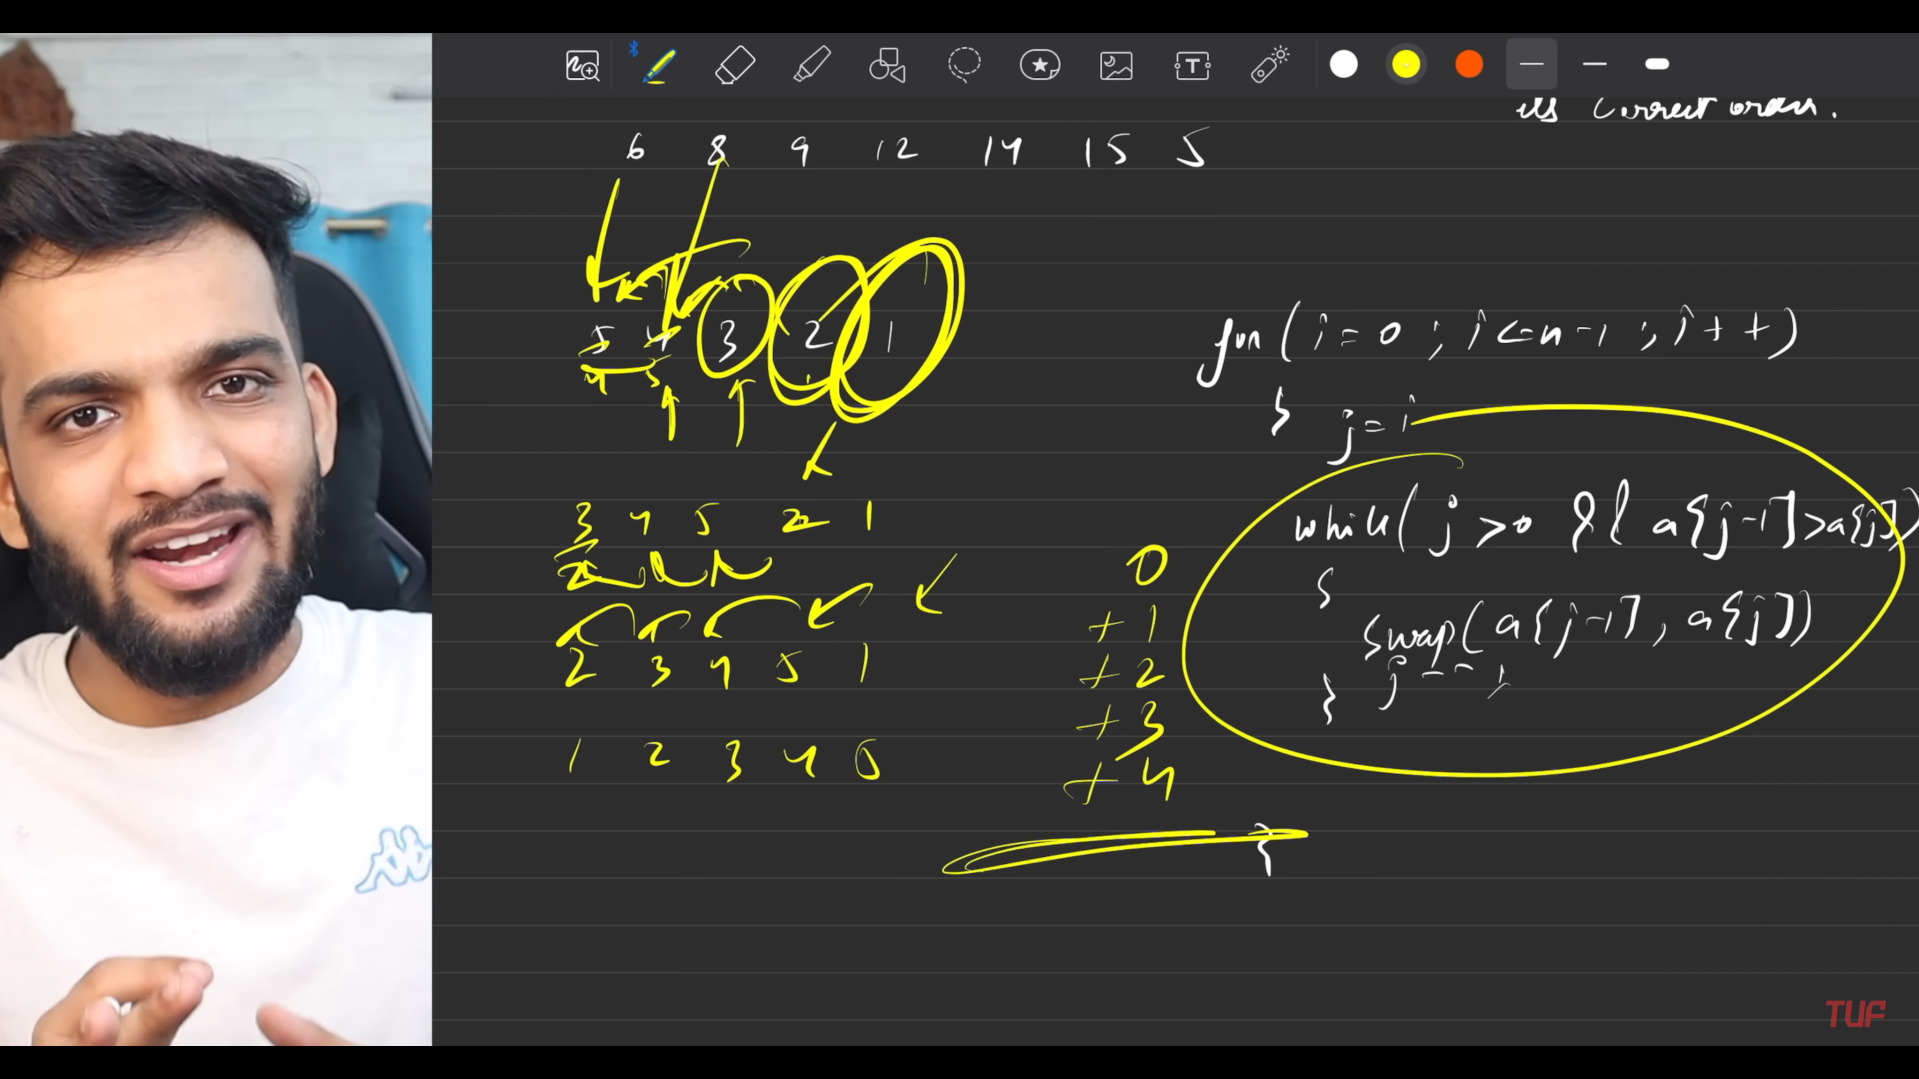 its correct order.
6 8 9 12 14 15 5
5 4 3 2 1
4 5
3 4 5 2 1
2
2 3 4 5 1
1 2 3 4 5
0
+ 1
+ 2
+ 3
+ 4
for ( i = 0 ; i <= n-1 ; i + + )
{ j = i
while( j >0 && a[j-1]>a[j])
{
swap( a[j-1], a[j])
} j -- ;
}
T
TUF